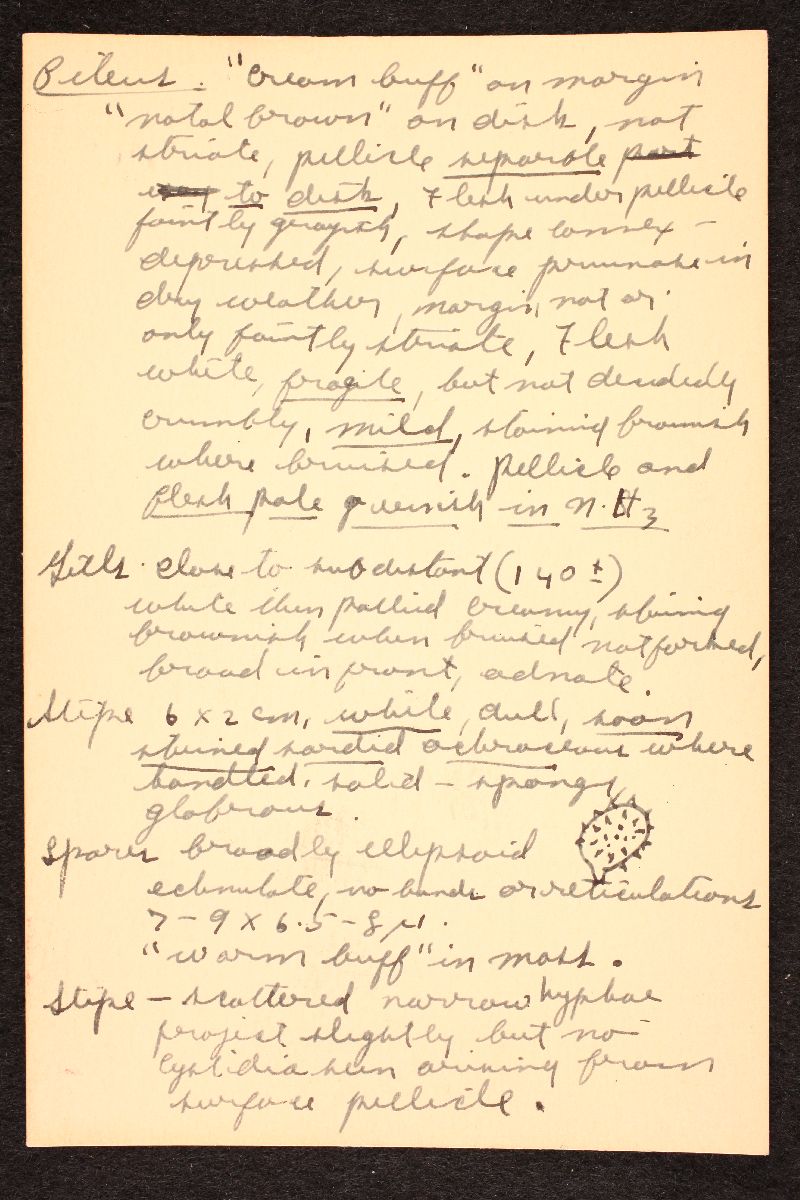 Pileus. "cream buff" on margin
"natal brown" on disk, not
striate, pellicle separable part
way to disk, Flesh under pellicle
faintly grayish, shape convex –
depressed, surface pruinose in
dry weather, margin not or
only faintly striate, Flesh
white, fragile, but not decidedly
crumbly, mild, staining brownish
where bruised. Pellicle and
flesh pale greenish in N.H3
Gills. close to subdistant (140 ±)
white then pallid creamy, staining
brownish when bruised not forked,
broad in front, adnate
Stipe 6 x 2 cm, white, dull, soon
stained sordid ochraceous where
handled, solid – spongy,
glabrous.
Spores broadly ellipsoid
echinulate, no bands or reticulations
7 – 9 x 6.5 – 8 μ.
"warm buff" in mass.
Stipe – scattered narrow hyphae
project slightly but no
cystidia seen arising from
surface pellicle.